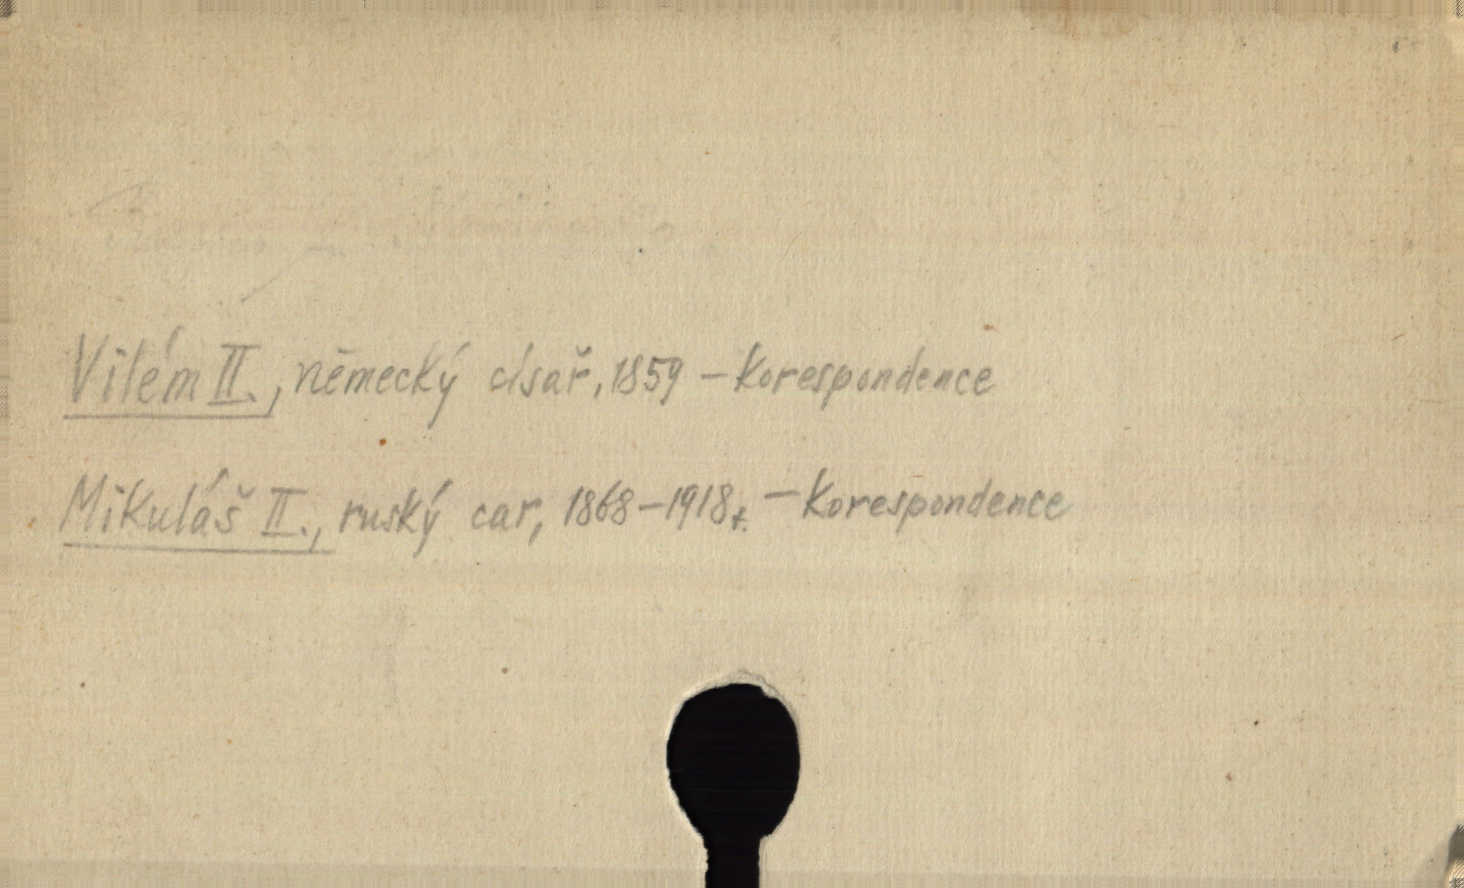 Vilém II., německý císař, 1859 – Korespondence
Mikuláš II., ruský car, 1868–1918 †. – Korespondence